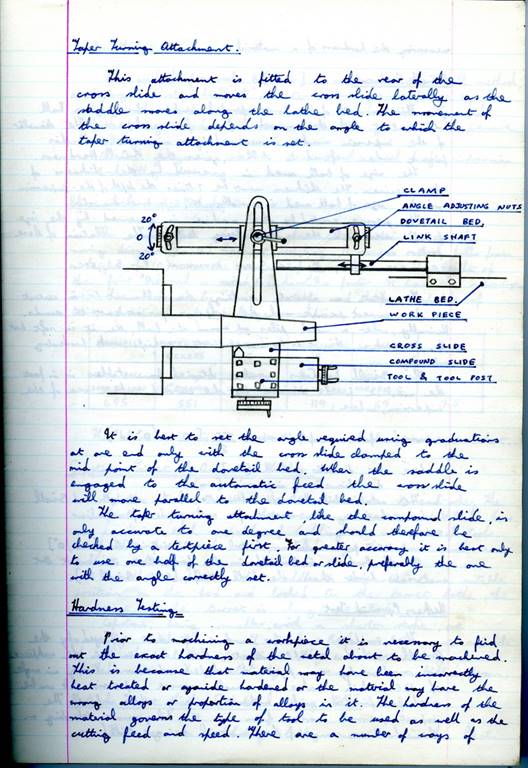 Taper Turning Attachment.
This attachment is fitted to the rear of the
cross slide and moves the cross slide laterally as the
saddle moves along the lathe bed. The movement of
the cross slide depends on the angle to which the
taper turning attachment is set.
CLAMP
ANGLE ADJUSTING NUTS
20°
DOVETAIL BED,
0
LINK SHAFT
20°
LATHE BED.
WORK PIECE
CROSS SLIDE
COMPOUND SLIDE
TOOL & TOOL POST
It is best to set the angle required using graduations
at one end only with the cross slide clamped to the
mid point of the dovetail bed. When the saddle is
engaged to the automatic feed the cross slide
will move parallel to the dovetail bed.
The taper turning attachment, like the compound slide, is
only accurate to one degree and should therefore be
checked by a testpiece first. For greater accuracy it is best only
to use one half of the dovetail bed or slide, preferably the one
with the angle correctly set.
Hardness Testing.
Prior to machining a workpiece it is necessary to find
out the exact hardness of the metal about to be machined.
This is because that material may have been incorrectly
heat treated or cyanide hardened or the material may have the
wrong alloys or proportion of alloys in it. The hardness of the
material governs the type of tool to be used as well as the
cutting feed and speed. There are a number of ways of